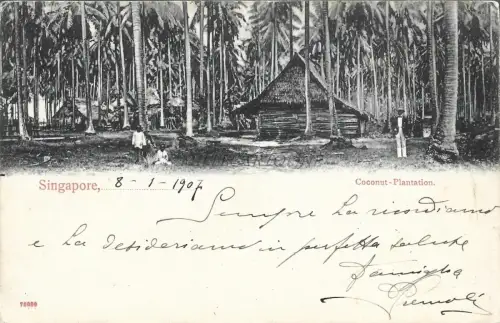 Singapore, 8-1-1907
Coconut-Plantation.
Sempre La ricordiamo
e La desideriamo in perfetta salute
Famiglia